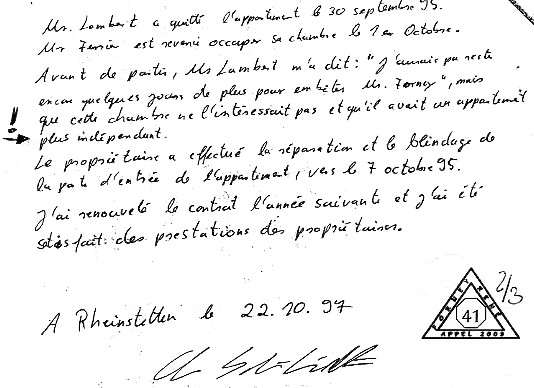 Mr. Lambert a quitté l'appartement le 30 septembre 95.
Mr est revenu occuper sa chambre le 1er Octobre.
Avant de partir, Mr Lambert m'a dit : "J'aurais pu resté
encor quelques jours de plus pour embêter Mr. Fornay", mais
que cette chambre ne l'intéressait pas et qu'il avait un appartemët
! plus indépendant.
Le propriétaire a effectué la réparation et le blindage de
la porte d'entrée de l'appartement, vers le 7 octobre 95.
J'ai renouvelé le contrat l'année suivante et j'ai été
satisfait des prestations des propriétaires.
A Rheinstetten le 22.10.97
2/3
RENE
41
APPEL 2003